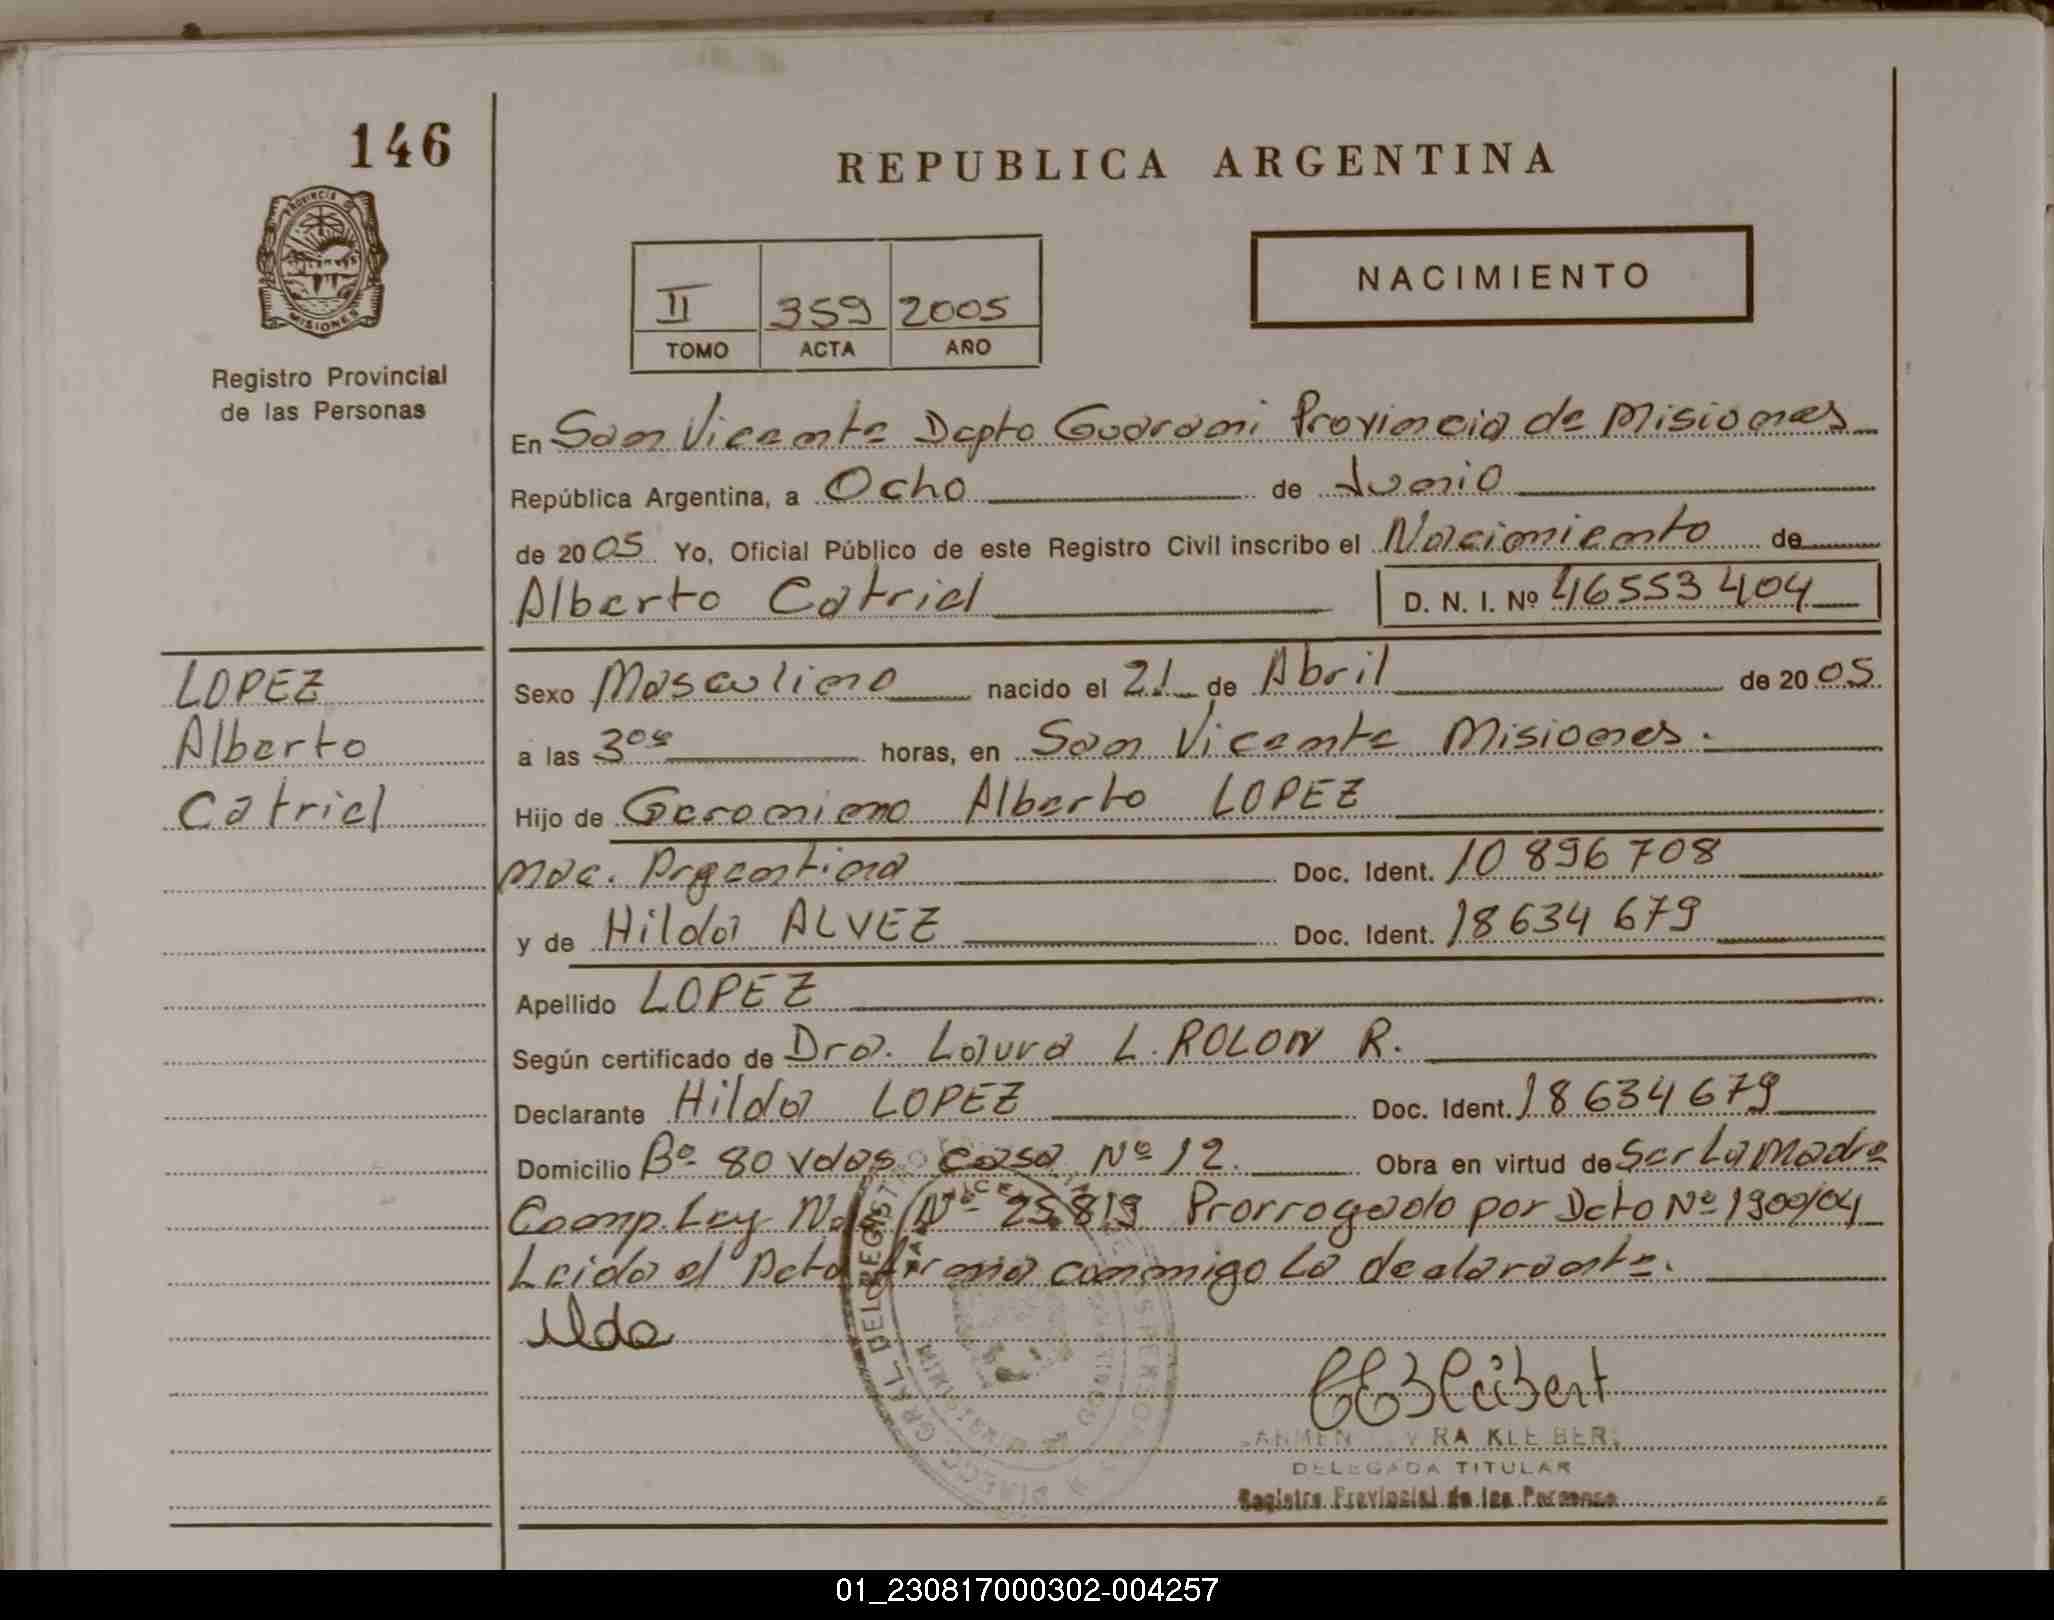 146
REPUBLICA ARGENTINA
PROVINCIA DE
MISIONES
NACIMIENTO
II 359 2005
TOMO ACTA AÑO
Registro Provincial
de las Personas
En San Vicente Dcpto Guarani Provincia de Misiones
República Argentina, a Ocho de Junio
de 2005 Yo, Oficial Público de este Registro Civil inscribo el Nacimiento de
Alberto Catriel D. N. I. Nº 46553404
LOPEZ
Alberto
Catriel
Sexo Masculino nacido el 21 de Abril de 2005
a las 3 horas, en San Vicente Misiones.
Hijo de Geronimo Alberto LOPEZ
nac. Argentina Doc. Ident. 10 896 708
y de Hilda ALVEZ Doc. Ident. 18 634 679
Apellido LOPEZ
Según certificado de Dra. Laura L. ROLON R.
Declarante Hilda LOPEZ Doc. Ident. 18 634 679
Domicilio Bº 80 Vdas casa Nº 12. Obra en virtud de Ser La Madre
Comp. Ley Nº 25.819 Prorrogado por Dcto Nº 1900/04
Leida el Acta firma conmigo La declarante.
Ilda
DELEGADA TITULAR
Registro Provincial de las Personas
01_230817000302-004257